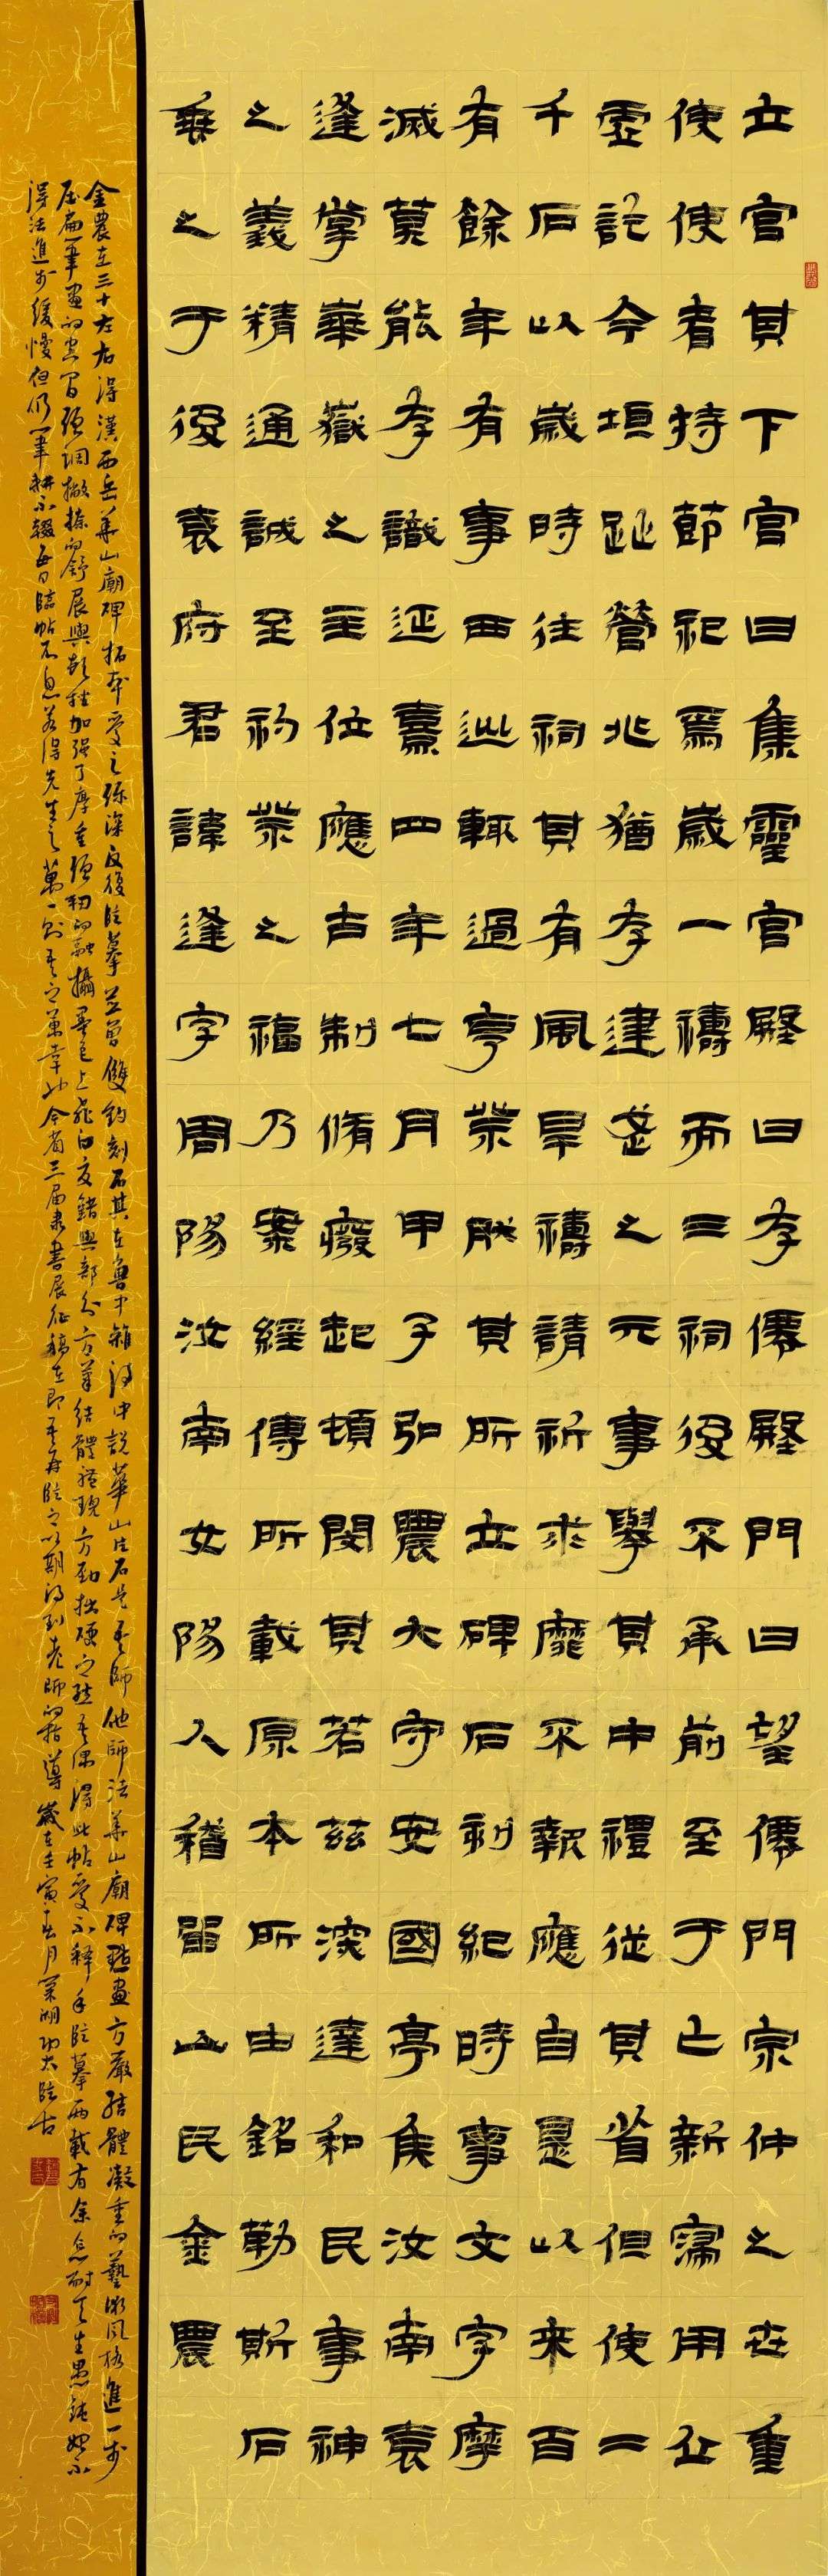 立官其下官曰集靈宮殿曰存僊殿門曰望僊門宗仲之世重
使使者持節祀焉歲一禱而三祠後不承前至于亡新寖用丘
虛訖今垣趾營兆猶存建武之元事舉其中禮從其省但使二
千石以歲時往祠其有風旱禱請祈求靡不報應自是以來百
有餘年有事西巡輒過亨祭然其所立碑石刻紀時事文字摩
滅莫能存識延熹四年七月甲子弘農大守安國亭侯汝南袁
逢掌華嶽之主位應古制脩廢起頓閔其若茲深達和民事神
之義精通誠至礿祭之福乃案經傳所載原本所由銘勒斯石
垂之于後袁府君諱逢字周陽汝南女陽人稽留山民金農
金農在三十左右得漢西岳華山廟碑拓本愛之彌深反復臨摹並曾雙鈎刻石其在魯中雜詩中說華山片石是吾師他師法華山廟碑點畫方嚴結體凝重的藝術風格進一步
壓扁筆畫的空間強調撇捺的舒展與加強了厚重強韌的融攝墨色上飛白交錯與部分方筆結體現方勁拙硬之吾偶得此帖愛不釋手臨摹兩載有余怎耐天生愚鈍如不
得法進步緩慢但仍筆耕不輟每日臨帖不息若得先生之萬一則吾之萬幸也今省三屆隸書展征稿在即吾再臨之以期得到老師的指導歲在壬寅春月臨古